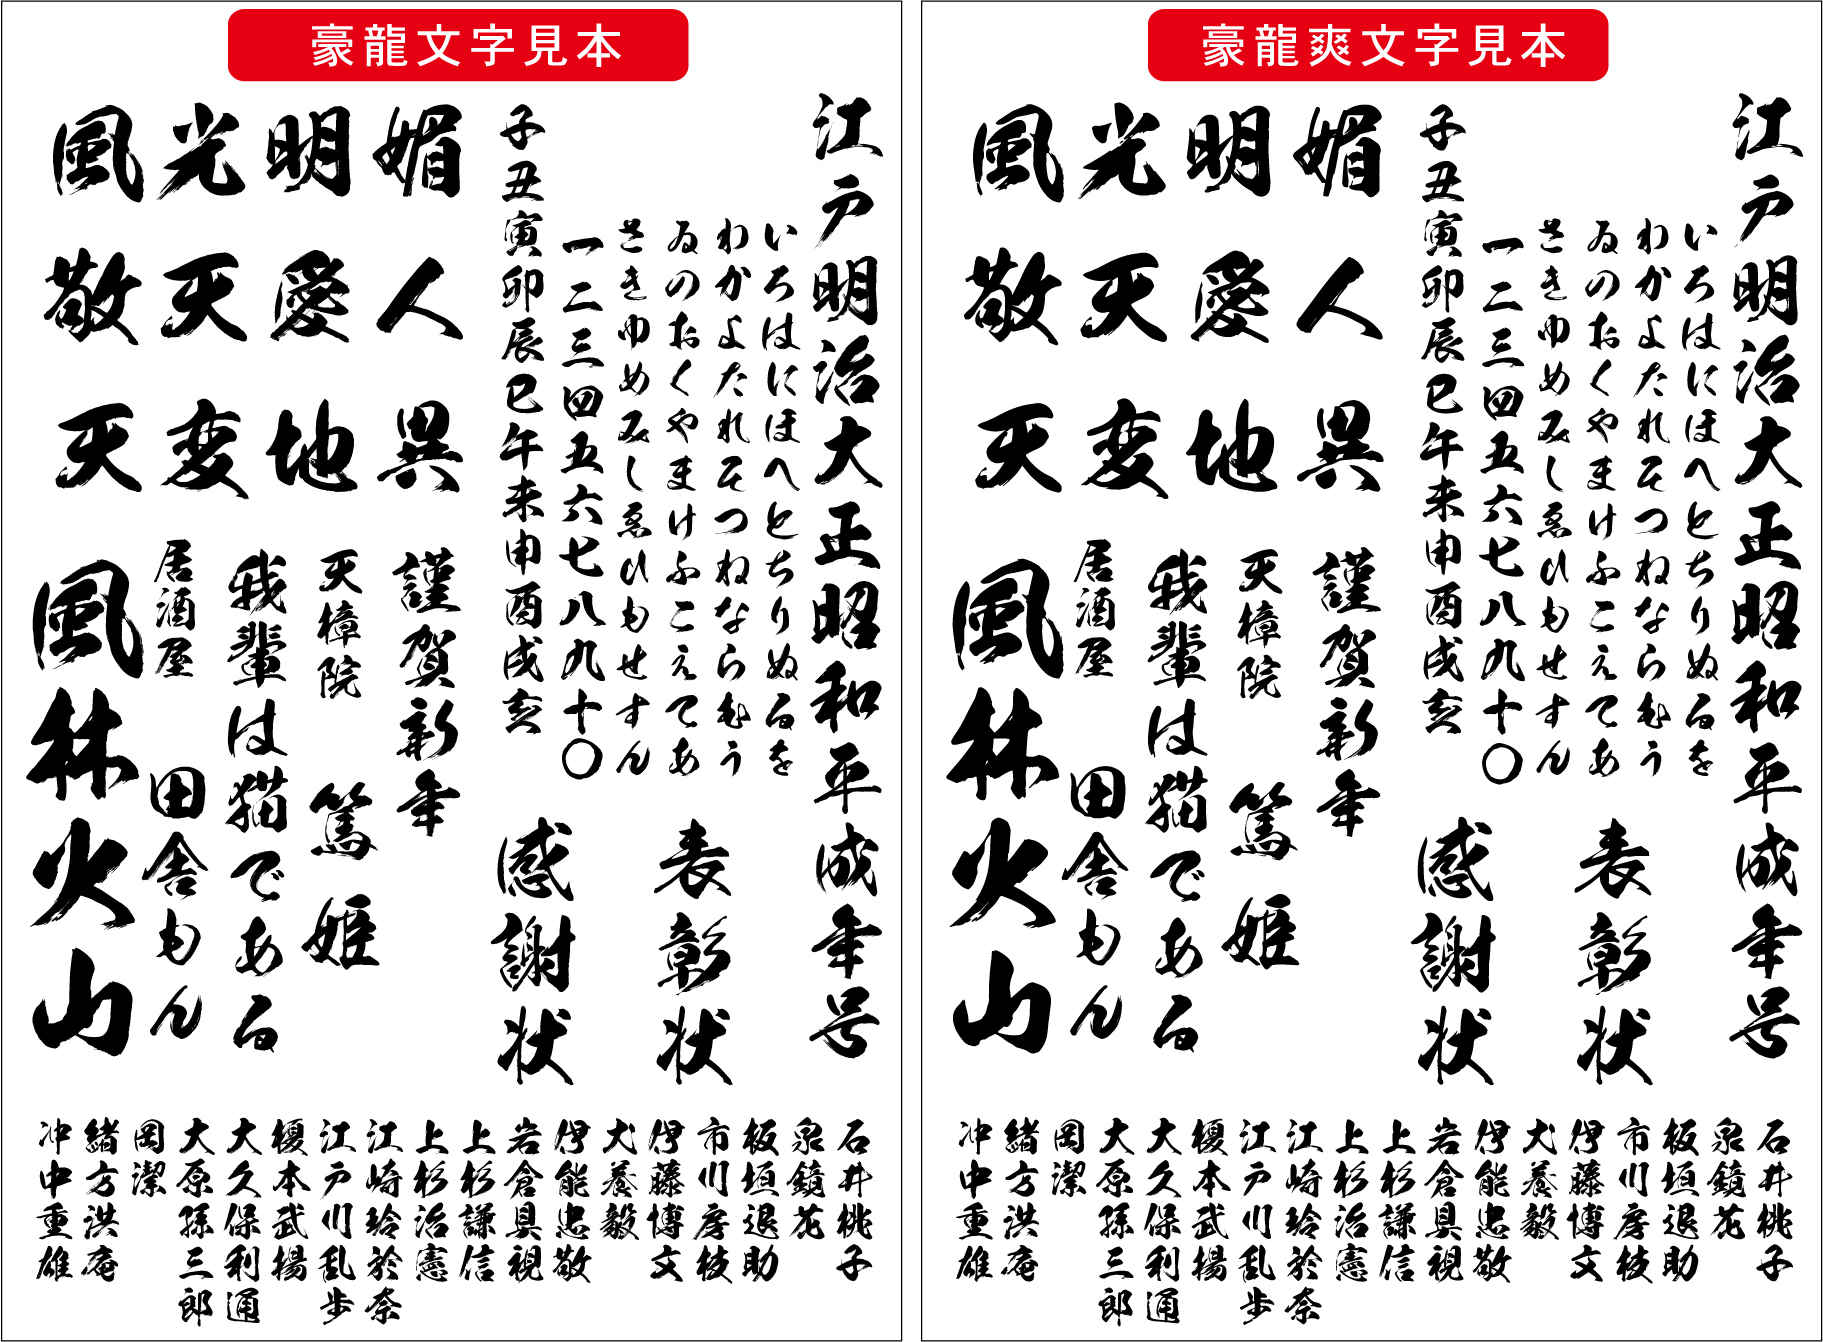 豪龍文字見本
江戸明治大正昭和平成年号
いろはにほへとちりぬるを
わかよたれそつねならむう
ゐのおくやまけふこえてあ
さきゆめみしゑひもせすん
一二三四五六七八九十〇
子丑寅卯辰巳午未申酉戌亥
表彰状
感謝状
風光明媚
敬天愛人
天変地異
謹賀新年
天樟院
篤姫
我輩は猫である
居酒屋
田舎もん
風林火山
石井桃子
泉鏡花
板垣退助
市川房枝
伊藤博文
犬養毅
伊能忠敬
岩倉具視
上杉謙信
上杉治憲
江崎玲於奈
江戸川乱歩
榎本武揚
大久保利通
大原孫三郎
岡潔
緒方洪庵
沖中重雄
豪龍爽文字見本
江戸明治大正昭和平成年号
いろはにほへとちりぬるを
わかよたれそつねならむう
ゐのおくやまけふこえてあ
さきゆめみしゑひもせすん
一二三四五六七八九十〇
子丑寅卯辰巳午未申酉戌亥
表彰状
感謝状
風光明媚
敬天愛人
天変地異
謹賀新年
天樟院
篤姫
我輩は猫である
居酒屋
田舎もん
風林火山
石井桃子
泉鏡花
板垣退助
市川房枝
伊藤博文
犬養毅
伊能忠敬
岩倉具視
上杉謙信
上杉治憲
江崎玲於奈
江戸川乱歩
榎本武揚
大久保利通
大原孫三郎
岡潔
緒方洪庵
沖中重雄